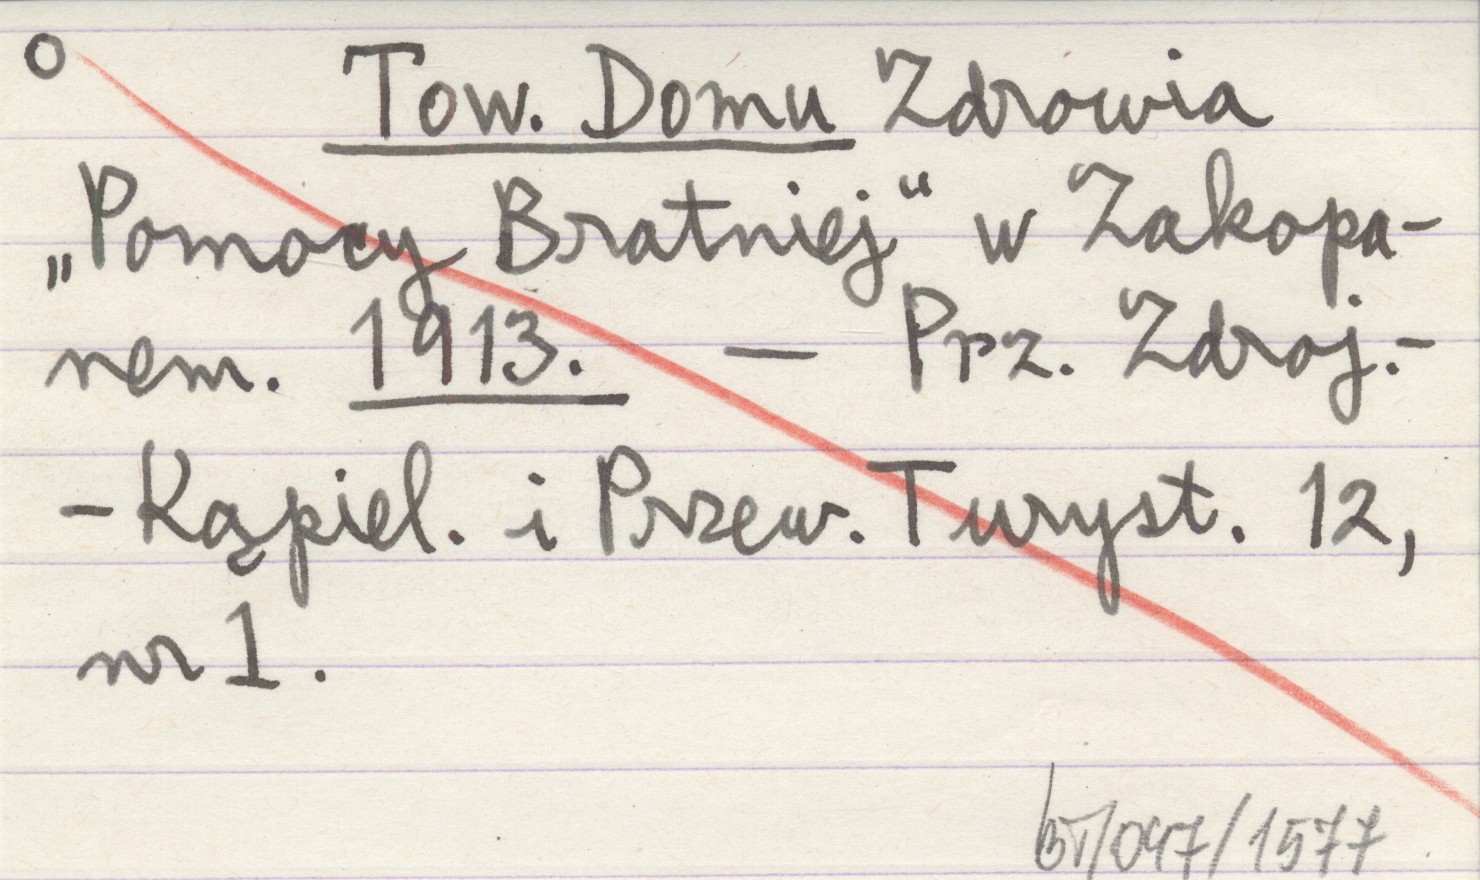 O Tow. Domu Zdrowia
„Pomocy Bratniej“ w Zakopa-
nem. 1913. — Prz. Zdroj.-
-Kąpiel. i Przew. Turyst. 12,
nr 1.
/047/1577